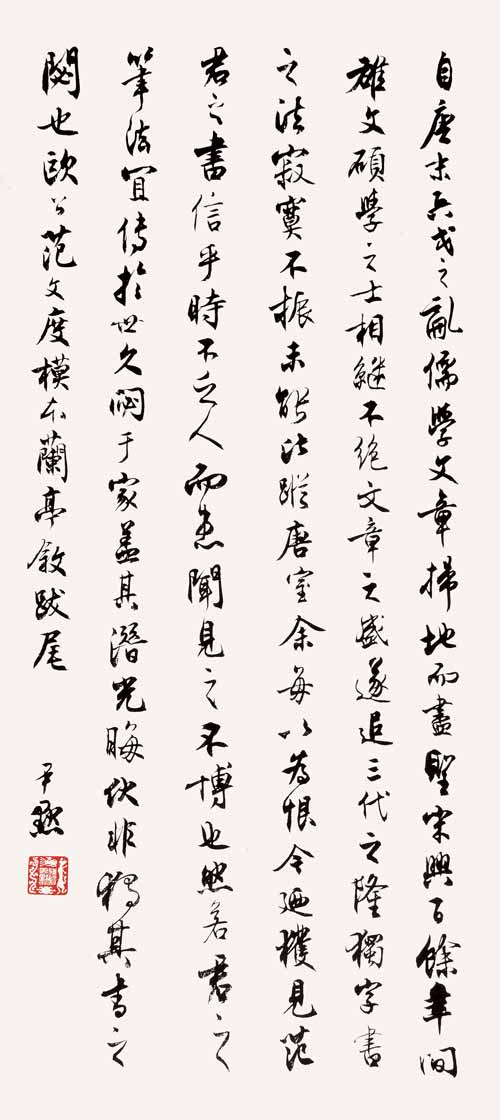 自唐末兵戎之亂儒學文章掃地而盡聖宋興百餘年間
雄文碩學之士相繼不絕文章之盛遂追三代之隆獨字書
之法寂寞不振未能比蹤唐室余每以為恨今迺獲見范
君之書信乎時不乏人而患聞見之不博也然若君之
筆法宜傳於世久閟于家蓋其潛光晦伏非獨其書之
閟也歐公范文度模本蘭亭敘跋尾
尹默